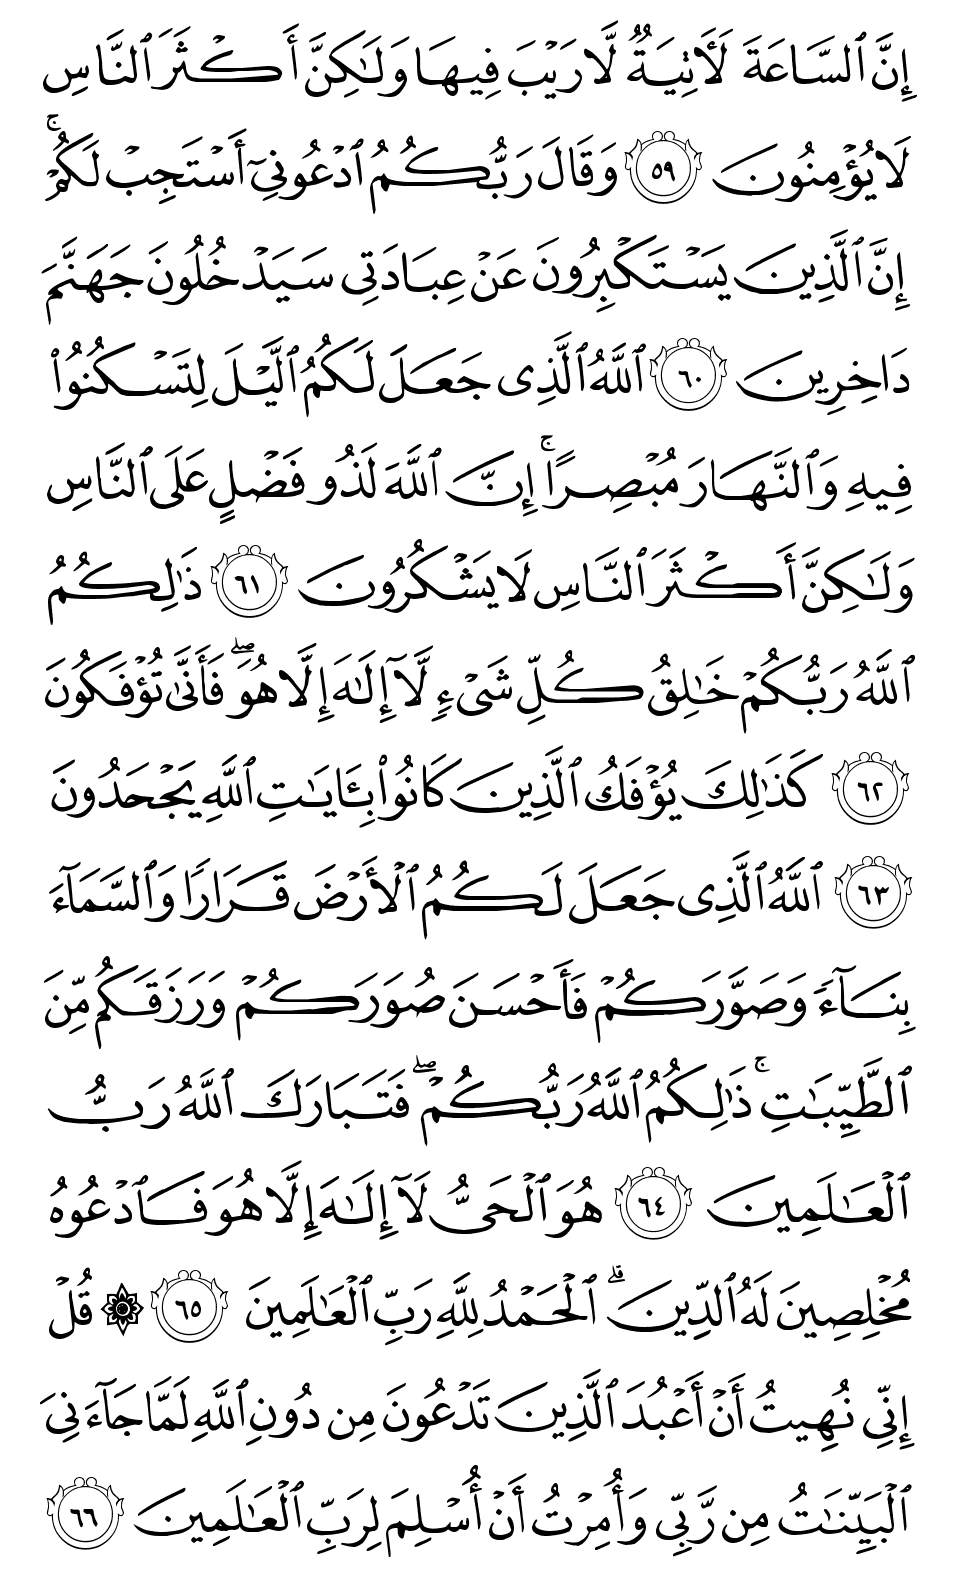 إِنَّ ٱلسَّاعَةَ لَأٓتِيَةٌ لَّا رَيْبَ فِيهَا وَلَٰكِنَّ أَكْثَرَ ٱلنَّاسِ
لَا يُؤْمِنُونَ ٥٩ وَقَالَ رَبُّكُمُ ٱدْعُونِىٓ أَسْتَجِبْ لَكُمْ ۚ
إِنَّ ٱلَّذِينَ يَسْتَكْبِرُونَ عَنْ عِبَادَتِى سَيَدْخُلُونَ جَهَنَّمَ
دَاخِرِينَ ٦٠ ٱللَّهُ ٱلَّذِى جَعَلَ لَكُمُ ٱلَّيْلَ لِتَسْكُنُوا۟
فِيهِ وَٱلنَّهَارَ مُبْصِرًا ۚ إِنَّ ٱللَّهَ لَذُو فَضْلٍ عَلَى ٱلنَّاسِ
وَلَٰكِنَّ أَكْثَرَ ٱلنَّاسِ لَا يَشْكُرُونَ ٦١ ذَٰلِكُمُ
ٱللَّهُ رَبُّكُمْ خَٰلِقُ كُلِّ شَىْءٍ لَّآ إِلَٰهَ إِلَّا هُوَ ۖ فَأَنَّىٰ تُؤْفَكُونَ
٦٢ كَذَٰلِكَ يُؤْفَكُ ٱلَّذِينَ كَانُوا۟ بِـَٔايَٰتِ ٱللَّهِ يَجْحَدُونَ
٦٣ ٱللَّهُ ٱلَّذِى جَعَلَ لَكُمُ ٱلْأَرْضَ قَرَارًا وَٱلسَّمَآءَ
بِنَآءً وَصَوَّرَكُمْ فَأَحْسَنَ صُوَرَكُمْ وَرَزَقَكُم مِّنَ
ٱلطَّيِّبَٰتِ ۚ ذَٰلِكُمُ ٱللَّهُ رَبُّكُمْ ۖ فَتَبَارَكَ ٱللَّهُ رَبُّ
ٱلْعَٰلَمِينَ ٦٤ هُوَ ٱلْحَىُّ لَآ إِلَٰهَ إِلَّا هُوَ فَٱدْعُوهُ
مُخْلِصِينَ لَهُ ٱلدِّينَ ۗ ٱلْحَمْدُ لِلَّهِ رَبِّ ٱلْعَٰلَمِينَ ٦٥ ۞ قُلْ
إِنِّى نُهِيتُ أَنْ أَعْبُدَ ٱلَّذِينَ تَدْعُونَ مِن دُونِ ٱللَّهِ لَمَّا جَآءَنِىَ
ٱلْبَيِّنَٰتُ مِن رَّبِّى وَأُمِرْتُ أَنْ أُسْلِمَ لِرَبِّ ٱلْعَٰلَمِينَ ٦٦